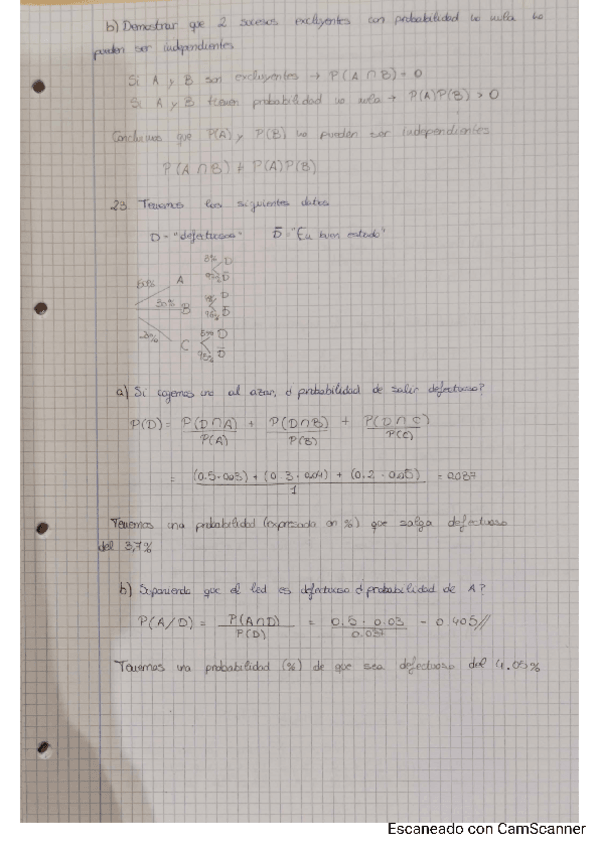 b) Demostrar que 2 sucesos excluyentes con probabilidad no nula no
pueden ser independientes
Si A y B son excluyentes → P(A ∩ B) = 0
Si A y B tienen probabilidad no nula → P(A)P(B) > 0
Concluimos que P(A) y P(B) no pueden ser independientes
P(A ∩ B) ≠ P(A)P(B)
23. Tenemos los siguientes datos
D = "defectuosos" D̄ = "En buen estado"
50% A 3% D
D̄
30% B D
D̄
20% C D
D̄
a) Si cogemos uno al azar, ¿probabilidad de salir defectuoso?
P(D) = P(D∩A) / P(A) + P(D∩B) / P(B) + P(D∩C) / P(C)
= (0.5·0.03) + (0.3·0.04) + (0.2·0.05) / 1 = 0.037
Tenemos una probabilidad (expresada en %) que salga defectuoso
del 3,7%
b) Suponiendo que el led es defectuoso ¿probabilidad de A?
P(A/D) = P(A∩D) / P(D) = 0.5 · 0.03 / 0.037 = 0.405//
Tenemos una probabilidad (%) de que sea defectuoso del 4.05%
Escaneado con CamScanner